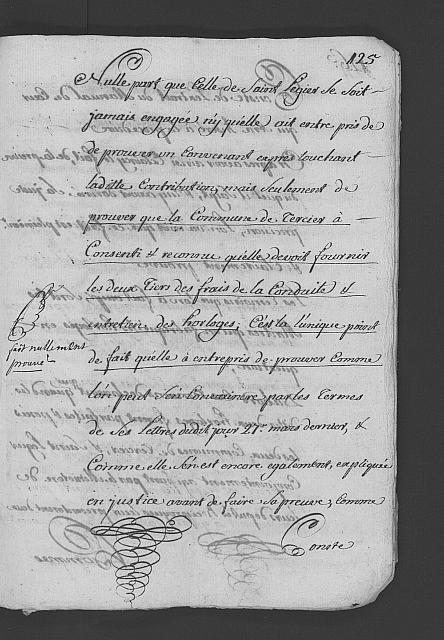 125
Nulle part que Celle de Saint Legier se soit
jamais engagée nÿ qu'elle ait entre pris de
de prouver un Convenant exprès touchant
ladite Contribution, mais seulement de
prouver que la Commune de Tercier à
Consenti & reconnu qu'elle devoit fournir
les deux tiers des frais de la Conduite &
entretien des horloges; C'est la l'unique point
fait nullement
prouvé
de fait qu'elle à entrepris de prouver Comme
l'on peut s'en Convaincre par les termes
de ses Lettres dudit jour 21.e mars dernier, &
Comme elle s'en est encore egalement, expliquée
en justice avant de faire sa preuve, Comme
Conste